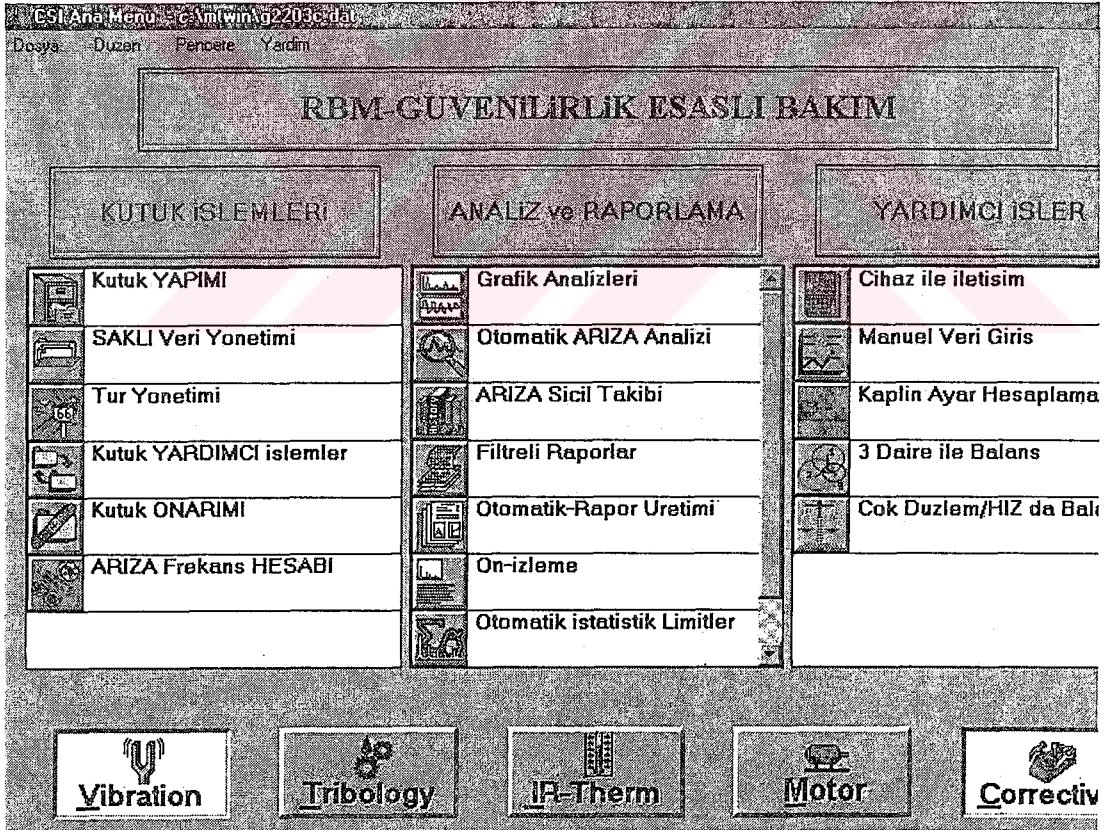 CSI Ana Menu - c:\mtwin\g2203c.dat
Dosya Duzen Pencere Yardim
RBM-GUVENiLiRLiK ESASLI BAKIM
KUTUK iSLEMLERi
ANALiZ ve RAPORLAMA
YARDIMCI iSLER
Kutuk YAPIMI
SAKLI Veri Yonetimi
Tur Yonetimi
Kutuk YARDIMCI islemler
Kutuk ONARIMI
ARIZA Frekans HESABI
Grafik Analizleri
Otomatik ARIZA Analizi
ARIZA Sicil Takibi
Filtreli Raporlar
Otomatik-Rapor Uretimi
On-izleme
Otomatik istatistik Limitler
Cihaz ile iletisim
Manuel Veri Giris
Kaplin Ayar Hesaplama
3 Daire ile Balans
Cok Duzlem/HIZ da Bal
Vibration
Tribology
IR-Therm
Motor
Correctiv